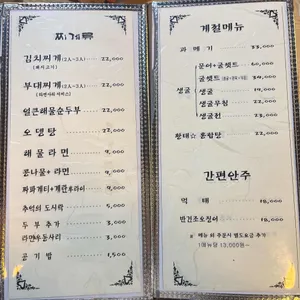 찌개류
김치찌개(2人~3人) 22,000
(돼지고기)
부대찌개(2人~3人) 22,000
(라면사리 서비스)
얼큰해물순두부 22,000
오뎅탕 22,000
해물라면 9,000
콩나물+라면 9,000
짜파게티+계란후라이 9,000
추억의 도시락 5,000
두부추가 3,000
라면우동사리 3,000
공기밥 1,500
계절메뉴
과메기 33,000
문어+굴셋트
굴셋트
생굴
생굴
생굴무침 22,000
생굴전 23,000
황태☆홍합탕 22,000
간편안주
먹태 18,000
반건조오징어 18,000
메뉴 外 주문시 별도요금 추가
(1메뉴당 13,000원~)